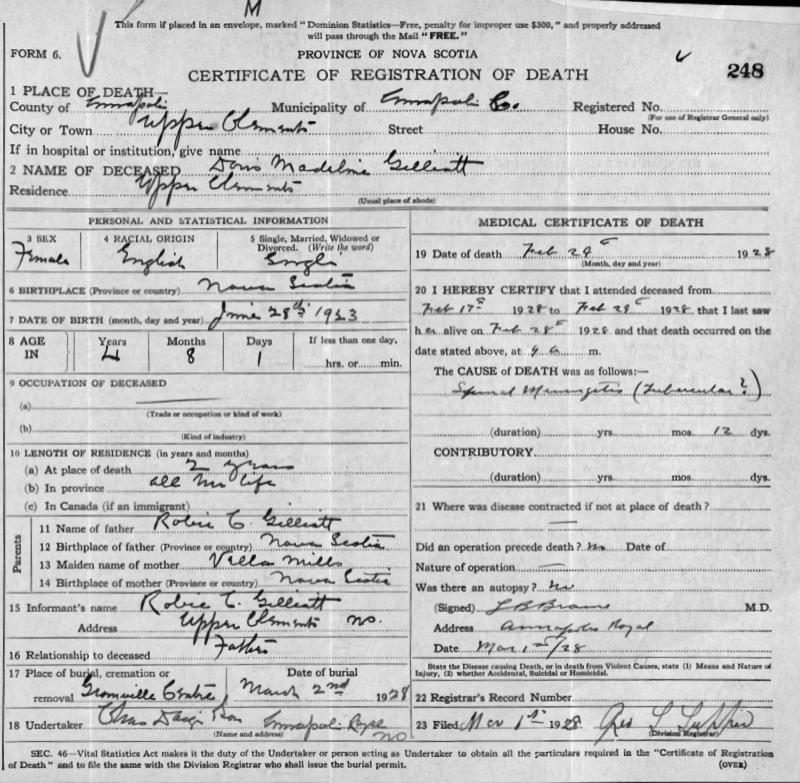 M
This form if placed in an envelope, marked "Dominion Statistics—Free, penalty for improper use $300," and properly addressed
will pass through the Mail "FREE."
FORM 6.
PROVINCE OF NOVA SCOTIA
CERTIFICATE OF REGISTRATION OF DEATH
248
1 PLACE OF DEATH—
County of Annapolis Municipality of Annapolis Co. Registered No.
(For use of Registrar General only)
City or Town Upper Clements Street House No.
If in hospital or institution, give name
2 NAME OF DECEASED Doris Madeline Gilliatt
Residence Upper Clements
(Usual place of abode)
PERSONAL AND STATISTICAL INFORMATION
3 SEX
Female
4 RACIAL ORIGIN
English
5 Single, Married, Widowed or
Divorced. (Write the word)
Single
6 BIRTHPLACE (Province or country) Nova Scotia
7 DATE OF BIRTH (month, day and year) June 28th 1923
8 AGE IN
Years 4
Months 8
Days 1
If less than one day,
hrs. or min.
9 OCCUPATION OF DECEASED
(a)
(Trade or occupation or kind of work)
(b)
(Kind of industry)
10 LENGTH OF RESIDENCE (in years and months)
(a) At place of death 2 years
(b) In province all her life
(c) In Canada (if an immigrant)
Parents
11 Name of father Robie C. Gilliatt
12 Birthplace of father (Province or country) Nova Scotia
13 Maiden name of mother Vella Mills
14 Birthplace of mother (Province or country) Nova Scotia
15 Informant's name Robie C. Gilliatt
Address Upper Clements
16 Relationship to deceased Father
17 Place of burial, cremation or
removal Centre
Date of burial
March 2nd 1928
18 Undertaker Annapolis Royal
(Name and address)
MEDICAL CERTIFICATE OF DEATH
19 Date of death Feb 29 1928
(Month, day and year)
20 I HEREBY CERTIFY that I attended deceased from
Feb 17 1928 to Feb 29 1928 that I last saw
her alive on Feb 28 1928 and that death occurred on
date stated above, at m.
The CAUSE of DEATH was as follows:—
Spinal Meningitis (Tubercular?)
(duration) yrs. mos. 12 dys.
CONTRIBUTORY
(duration) yrs. mos. dys.
21 Where was disease contracted if not at place of death?
Did an operation precede death? No Date of
Nature of operation
Was there an autopsy? No
(Signed) L B Braine M.D.
Address Annapolis Royal
Date Mar 1st/28
State the Disease causing Death, or in death from Violent Causes, state (1) Means and Nature of
Injury, (2) whether Accidental, Suicidal or Homicidal.
22 Registrar's Record Number
23 Filed Mar 1st 1928
(Division Registrar)
SEC. 46—Vital Statistics Act makes it the duty of the Undertaker or person acting as Undertaker to obtain all the particulars required in the "Certificate of Registration
of Death" and to file the same with the Division Registrar who shall issue the burial permit.
(OVER)